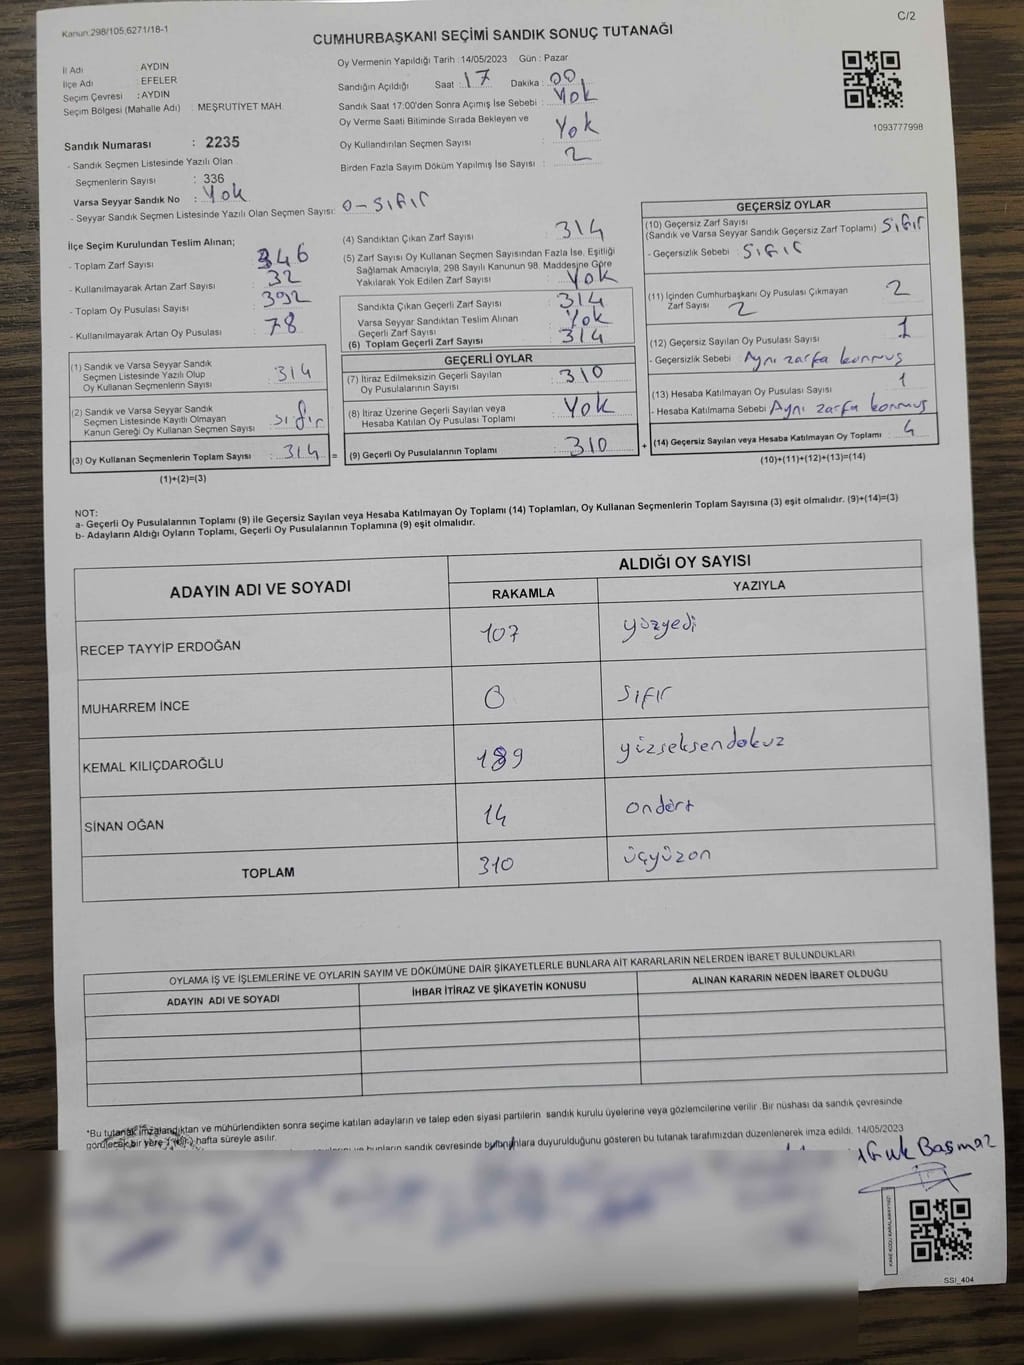 Kanun.298/105,6271/18-1
C/2
CUMHURBAŞKANI SEÇİMİ SANDIK SONUÇ TUTANAĞI
İl Adı : AYDIN
İlçe Adı : EFELER
Seçim Çevresi : AYDIN
Seçim Bölgesi (Mahalle Adı) : MEŞRUTİYET MAH.
Sandık Numarası : 2235
- Sandık Seçmen Listesinde Yazılı Olan
Seçmenlerin Sayısı : 336
Varsa Seyyar Sandık No : Yok
- Seyyar Sandık Seçmen Listesinde Yazılı Olan Seçmen Sayısı: 0-sıfır
Oy Vermenin Yapıldığı Tarih : 14/05/2023 Gün : Pazar
Sandığın Açıldığı Saat : 17 Dakika : 00
Sandık Saat 17:00'den Sonra Açımış İse Sebebi : Yok
Oy Verme Saati Bitiminde Sırada Bekleyen ve
Oy Kullandırılan Seçmen Sayısı : Yok
Birden Fazla Sayım Döküm Yapılmış İse Sayısı : 2
1093777998
İlçe Seçim Kurulundan Teslim Alınan;
- Toplam Zarf Sayısı : 346
- Kullanılmayarak Artan Zarf Sayısı : 32
- Toplam Oy Pusulası Sayısı : 392
- Kullanılmayarak Artan Oy Pusulası : 78
(1) Sandık ve Varsa Seyyar Sandık
Seçmen Listesinde Yazılı Olup
Oy Kullanan Seçmenlerin Sayısı : 314
(2) Sandık ve Varsa Seyyar Sandık
Seçmen Listesinde Kayıtlı Olmayan
Kanun Gereği Oy Kullanan Seçmen Sayısı : sıfır
(3) Oy Kullanan Seçmenlerin Toplam Sayısı : 314 =
(1)+(2)=(3)
(4) Sandıktan Çıkan Zarf Sayısı : 314
(5) Zarf Sayısı Oy Kullanan Seçmen Sayısından Fazla İse, Eşitliği
Sağlamak Amacıyla, 298 Sayılı Kanunun 98. Maddesine Göre
Yakılarak Yok Edilen Zarf Sayısı : Yok
Sandıkta Çıkan Geçerli Zarf Sayısı : 314
Varsa Seyyar Sandıktan Teslim Alınan
Geçerli Zarf Sayısı : Yok
(6) Toplam Geçerli Zarf Sayısı : 314
GEÇERLİ OYLAR
(7) İtiraz Edilmeksizin Geçerli Sayılan
Oy Pusulalarının Sayısı : 310
(8) İtiraz Üzerine Geçerli Sayılan veya
Hesaba Katılan Oy Pusulası Toplamı : Yok
(9) Geçerli Oy Pusulalarının Toplamı : 310 +
GEÇERSİZ OYLAR
(10) Geçersiz Zarf Sayısı
(Sandık ve Varsa Seyyar Sandık Geçersiz Zarf Toplamı) sıfır
- Geçersizlik Sebebi : sıfır
(11) İçinden Cumhurbaşkanı Oy Pusulası Çıkmayan 2
Zarf Sayısı 2
(12) Geçersiz Sayılan Oy Pusulası Sayısı : 1
- Geçersizlik Sebebi : Aynı zarfa konmuş
(13) Hesaba Katılmayan Oy Pusulası Sayısı 1
- Hesaba Katılmama Sebebi Aynı zarfa konmuş
(14) Geçersiz Sayılan veya Hesaba Katılmayan Oy Toplamı : 4
(10)+(11)+(12)+(13)=(14)
NOT:
a- Geçerli Oy Pusulalarının Toplamı (9) ile Geçersiz Sayılan veya Hesaba Katılmayan Oy Toplamı (14) Toplamları, Oy Kullanan Seçmenlerin Toplam Sayısına (3) eşit olmalıdır. (9)+(14)=(3)
b- Adayların Aldığı Oyların Toplamı, Geçerli Oy Pusulalarının Toplamına (9) eşit olmalıdır.
ADAYIN ADI VE SOYADI
ALDIĞI OY SAYISI
RAKAMLA YAZIYLA
RECEP TAYYİP ERDOĞAN 107 yüzyedi
MUHARREM İNCE 0 sıfır
KEMAL KILIÇDAROĞLU 189 yüzseksendokuz
SİNAN OĞAN 14 ondört
TOPLAM 310 üçyüzon
OYLAMA İŞ VE İŞLEMLERİNE VE OYLARIN SAYIM VE DÖKÜMÜNE DAİR ŞİKAYETLERLE BUNLARA AİT KARARLARIN NELERDEN İBARET BULUNDUKLARI
ADAYIN ADI VE SOYADI İHBAR İTİRAZ VE ŞİKAYETİN KONUSU ALINAN KARARIN NEDEN İBARET OLDUĞU
*Bu tutanak imzalandıktan ve mühürlendikten sonra seçime katılan adayların ve talep eden siyasi partilerin sandık kurulu üyelerine veya gözlemcilerine verilir. Bir nüshası da sandık çevresinde
görülecek bir yere hafta süreyle asılır.
ve bunların sandık çevresinde bulunanlara duyurulduğunu gösteren bu tutanak tarafımızdan düzenlenerek imza edildi. 14/05/2023
Başmaz
SSI_404